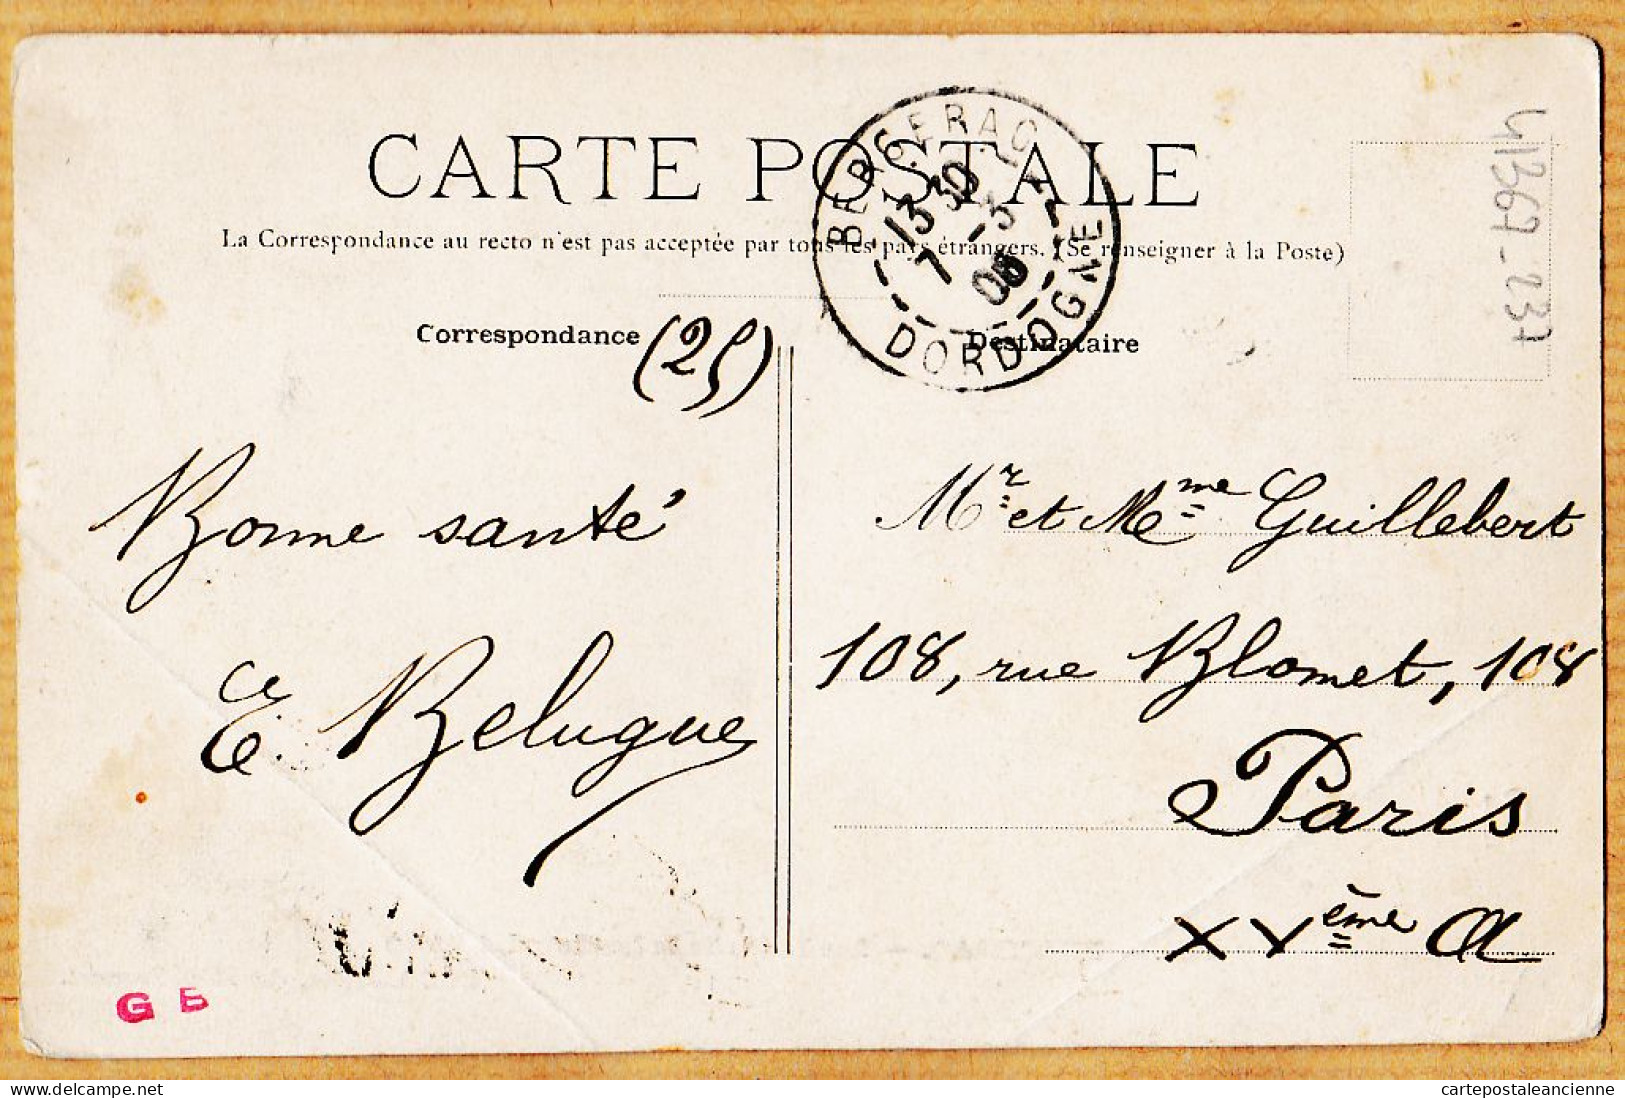 CARTE POSTALE
La Correspondance au recto n'est pas acceptée par tous les pays étrangers. (Se renseigner à la Poste)
BERGERAC
13 30
7 -3
DORDOGNE
41367-237
Correspondance
(25)
Destinataire
Bonne santé
E. Belugue
Mr et Mme Guillebert
108, rue Blomet, 108
Paris
XVème A
G B
cartes-postales-delcampe.net
cartepostaleancienne